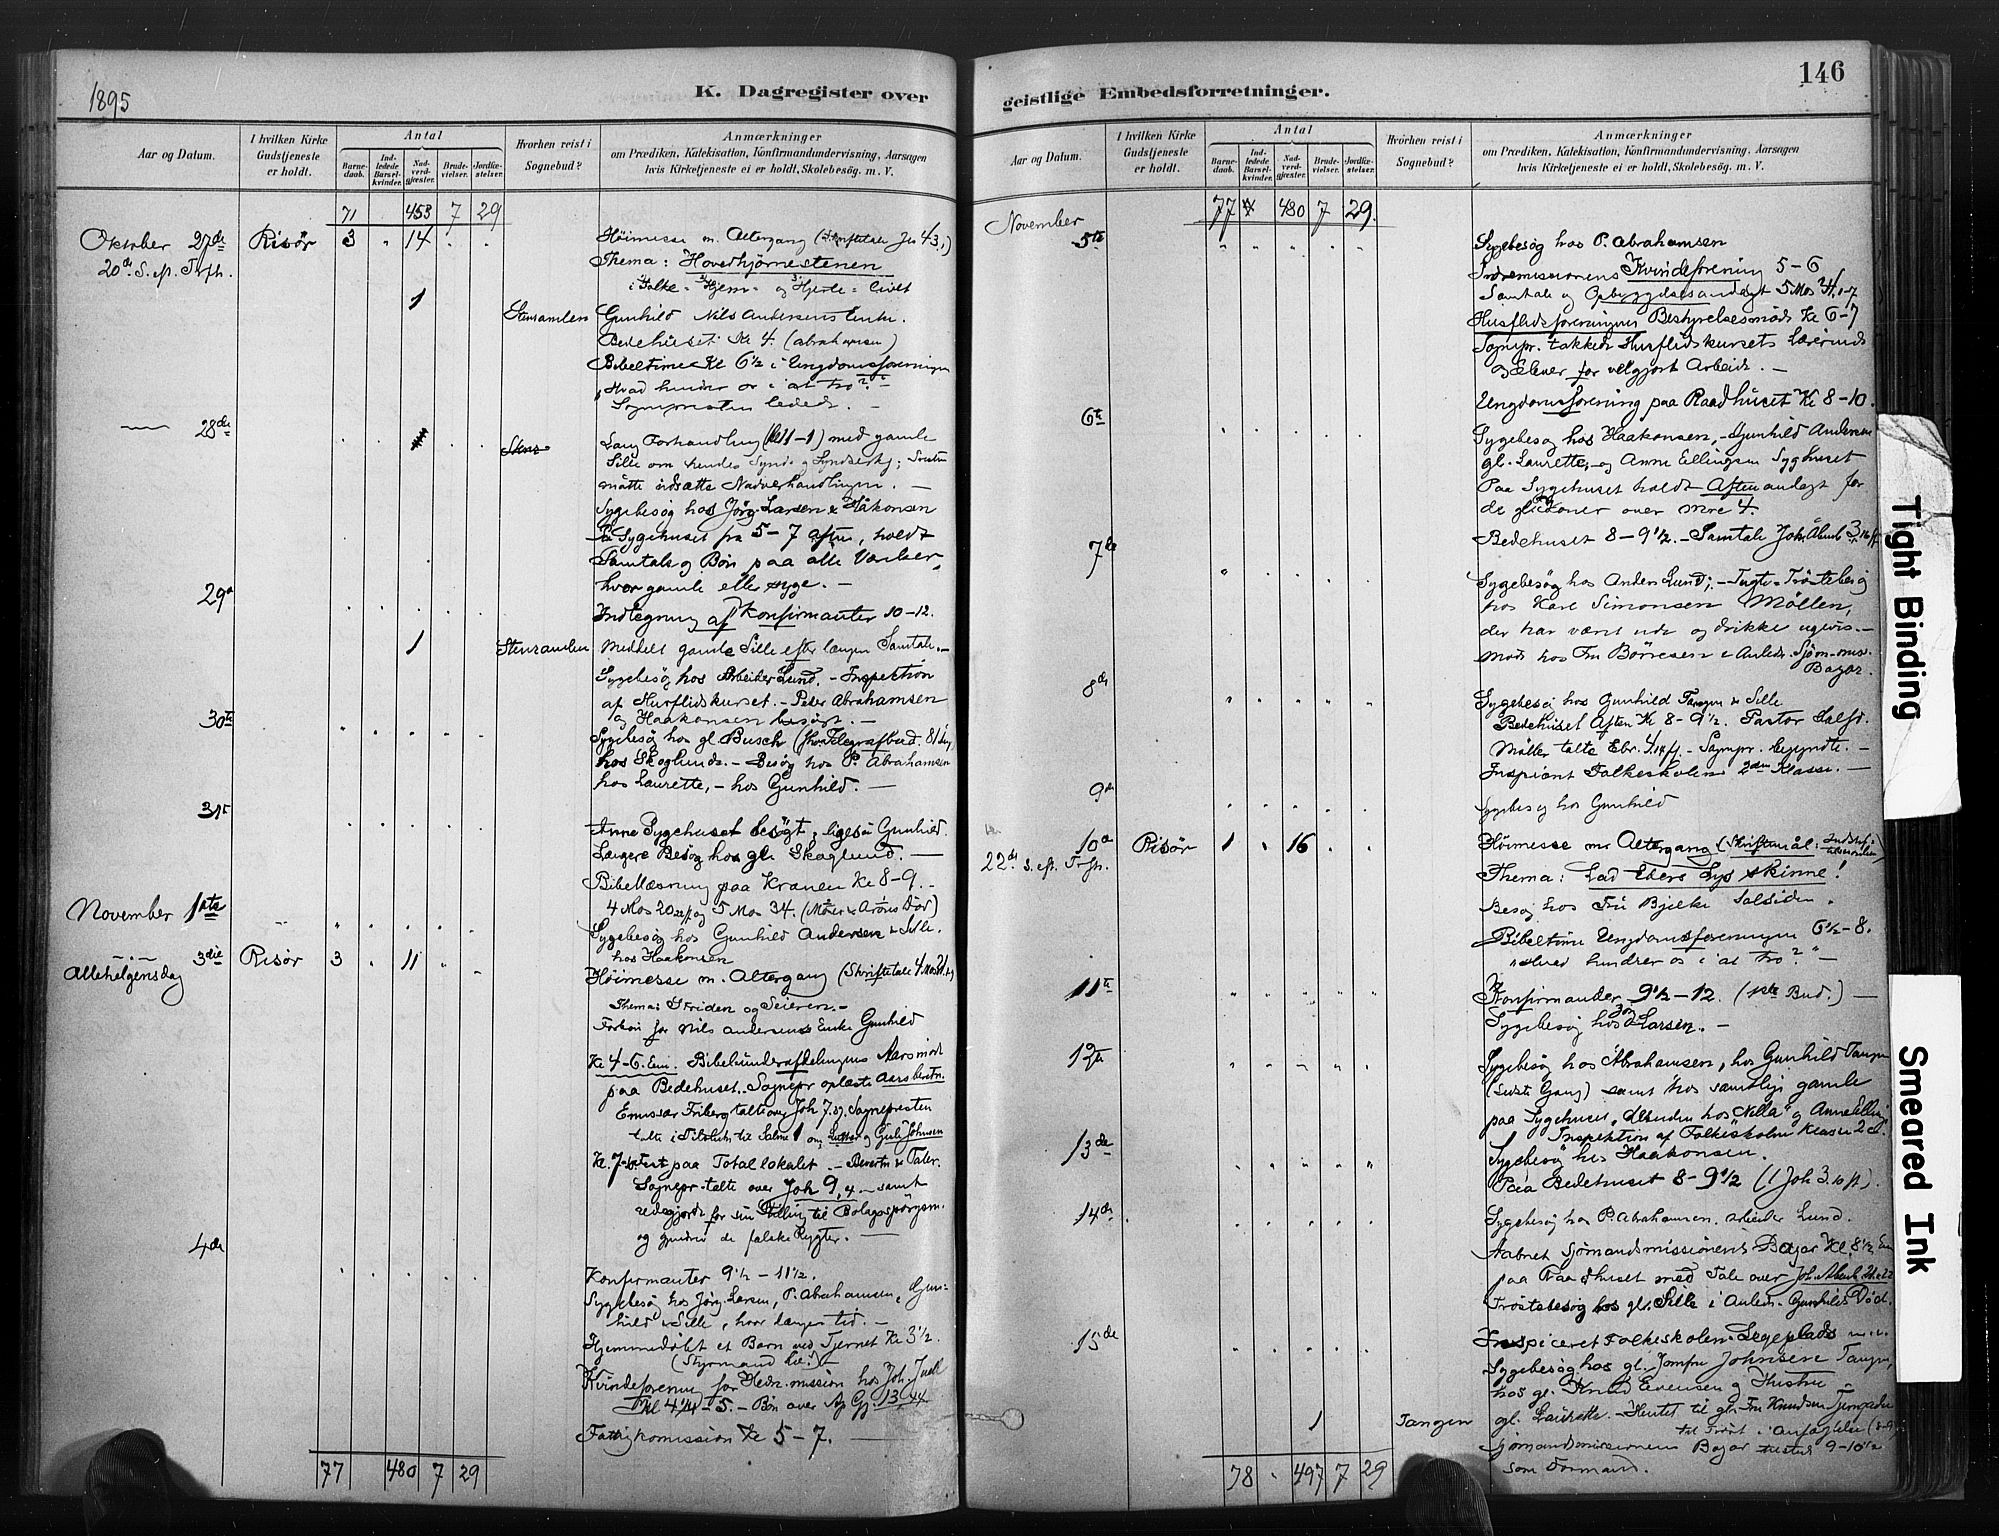 1895
K. Dagregister over
Aar og Datum.
I hvilken Kirke Gudstjeneste er holdt.
Antal
Barnedaab.
Indledede Barselkvinder.
Nadverdgjæster.
Brudevielser.
Jordfæstelser.
Hvorhen reist i Sognebud?
Anmærkninger
om Prædiken, Katekisation, Konfirmandundervisning, Aarsagen
hvis Kirketjeneste ei er holdt, Skolebesøg. m. V.
71 453 7 29
Oktober 27de Risör 3 " 14 Höimesse m. Altergang
20de S. eft. Trfh. Thema: Hovedhjörnestenen
i Folke- Hjem- og Hjerte- Livet
1
Gunhild Nils Andersens Enke.
Bedehuset Kl 4. (Abrahamsen)
Bibeltime Kl 6½ i Ungdomsforeningen
"Hvad hindrer os i at tro?"
Sognepresten ledede.
28de Lang Forhandling (Kl 11-1) med gamle
Sille om hendes Synd og
måtte udsætte Nadverhandlingen.
Sygebesög hos Jörg. Larsen & Håkonsen
Sygehuset fra 5-7 aften, holdt
Samtale og Bön paa alle Værelser,
hvor gamle eller syge.
29de Indtegning af Konfirmanter 10-12.
1 Meddelt gamle Sille efter længere Samtale.
Sygebesög hos Arbeider Lund. - Inspektion
af Husflidskurset. - Peder Abrahamsen
og Haakonsen besögt.
30te Sygebesög hos gl. Busch
hos Skoglund. - Besög hos P. Abrahamsen
hos Laurette, - hos Gunhild.
31te Anne Sygehuset besögt; ligeså Gunhild.
Længere Besög hos gl. Skoglund.
Bibellæsning paa Kranen Kl 8-9.
4 Mos 20 og 5 Mos 34. (Moses & Arons Död)
November 1ste Sygebesög hos Gunhild Andersen & Sille.
hos Haakonsen
3die Risör 3 " 11 Höimesse m. Altergang (Skriftetale 4 Mos 21.
Allehelgensdag Thema: Striden og Seieren.
Forbön for Nils Andersens Enke Gunhild
Kl 4-6. Em. Bibelunderafdelingens Aarsmöde
paa Bedehuset. Sognepr oplæste Aarsberetn.
Emissær Friberg talte over Joh 7. Sognepresten
talte i Tilslutn. til Salme 1
Kl. 7 Fest paa Totallokalet. - Beretn & Taler.
Sognepr. talte over Joh 9,4 - samt
redegjorde for sin Stilling til Bolagsspörgsm.
og de falske Rygter.
4de Konfirmanter 9½ - 11½.
Sygebesög hos Jörg. Larsen, P. Abrahamsen, Gun-
hild & Sille, hvor længere tid.
Hjemmedöbt et Barn ved Tjernet Kl 3½.
Kvindeforening for Hedn. mission hos Joh. Juell
Kl 4¼ - 5. - Bön over Ap Gj. 13,
Fattigkomission Kl 5-7.
77 480 7 29
geistlige Embedsforretninger.
146
Aar og Datum.
I hvilken Kirke Gudstjeneste er holdt.
Antal
Barnedaab.
Indledede Barselkvinder.
Nadverdgjæster.
Brudevielser.
Jordfæstelser.
Hvorhen reist i Sognebud?
Anmærkninger
om Prædiken, Katekisation, Konfirmandundervisning, Aarsagen
hvis Kirketjeneste ei er holdt, Skolebesøg. m. V.
77 480 7 29.
November
5te Sygebesög hos P. Abrahamsen
Indremissionens Kvindeforening 5-6
Samtale og Opbyggelsesandagt 5 Mos
Husflidsforeningens Bestyrelsesmöde Kl 6-7
Sognepr. takkede Husflidskursets Lærerinde
og Elever for velgjort Arbeide.
Ungdomsforening paa Raadhuset Kl 8-10.
6te Sygebesög hos Haakonsen, - Gunhild Andersen
gl. Laurette, og Anne Ellingsen Sygehuset
Paa Sygehuset holdt Aftenandagt for
Bedehuset 8-9½. - Samtale Joh. Åbenb 3
7de Sygebesög hos Anders Lund; - Tugt- Tröstebesög
hos Karl Simonsen Möllen,
der har været ude og drikke ugevis.
Möde hos Fru Börresen i Anledn. Sjöm. miss.
Bazar.
8de Sygebesög hos Gunhild Tangen & Sille
Bedehuset Aften Kl 8-9½. Pastor
Möller talte Ebr. 4. - Sognepr. begyndte.
Folkeskolens 2den Klasse.
9de Sygebesög hos Gunhild
10de Risör 1 " 16 Höimesse m. Altergang
22de S. eft. Trfh. Thema: Lad Eders Lys skinne!
Besög hos Fru Bjelke Solsiden.
Bibeltime Ungdomsforeningen 6½-8.
"Hvad hindrer os i at tro?"
11te Konfirmander 9½-12. (1ste Bud.)
Sygebesög hos Larsen.
12te Sygebesög hos Abrahamsen, hos Gunhild Tangen
(sidste Gang) samt hos samtlige gamle
paa Sygehuset, desuden hos "Nella" og Anne Elling
Inspektion af Folkeskolen Klasse 2
13de Sygebesög hos Haakonsen.
Paa Bedehuset 8-9½ (1 Joh 3.10 ff).
14de Sygebesög hos P. Abrahamsen. Arbeider Lund.
Aabnet Sjömandsmissionens Bazar Kl. 8½ Em
paa Raadhuset med Tale over Joh. Åbenb 21 & 22
Tröstebesög hos gl. Sille i Anledn. Gunhilds Död.
15de Inspiceret Folkeskolens Legeplads m.v.
Sygebesög hos gl. Jomfru Johnsine Tangen,
hos gl. Knud Evensen og Hustru
1 Tangen gl. Laurette. - Hentet til gl. Fru Knudsen
til Tröst i Anfægtelse
Sjömandsmissionens Bazar 9-10½
som Formand.
78 497 7 29
Tight Binding
Smeared Ink